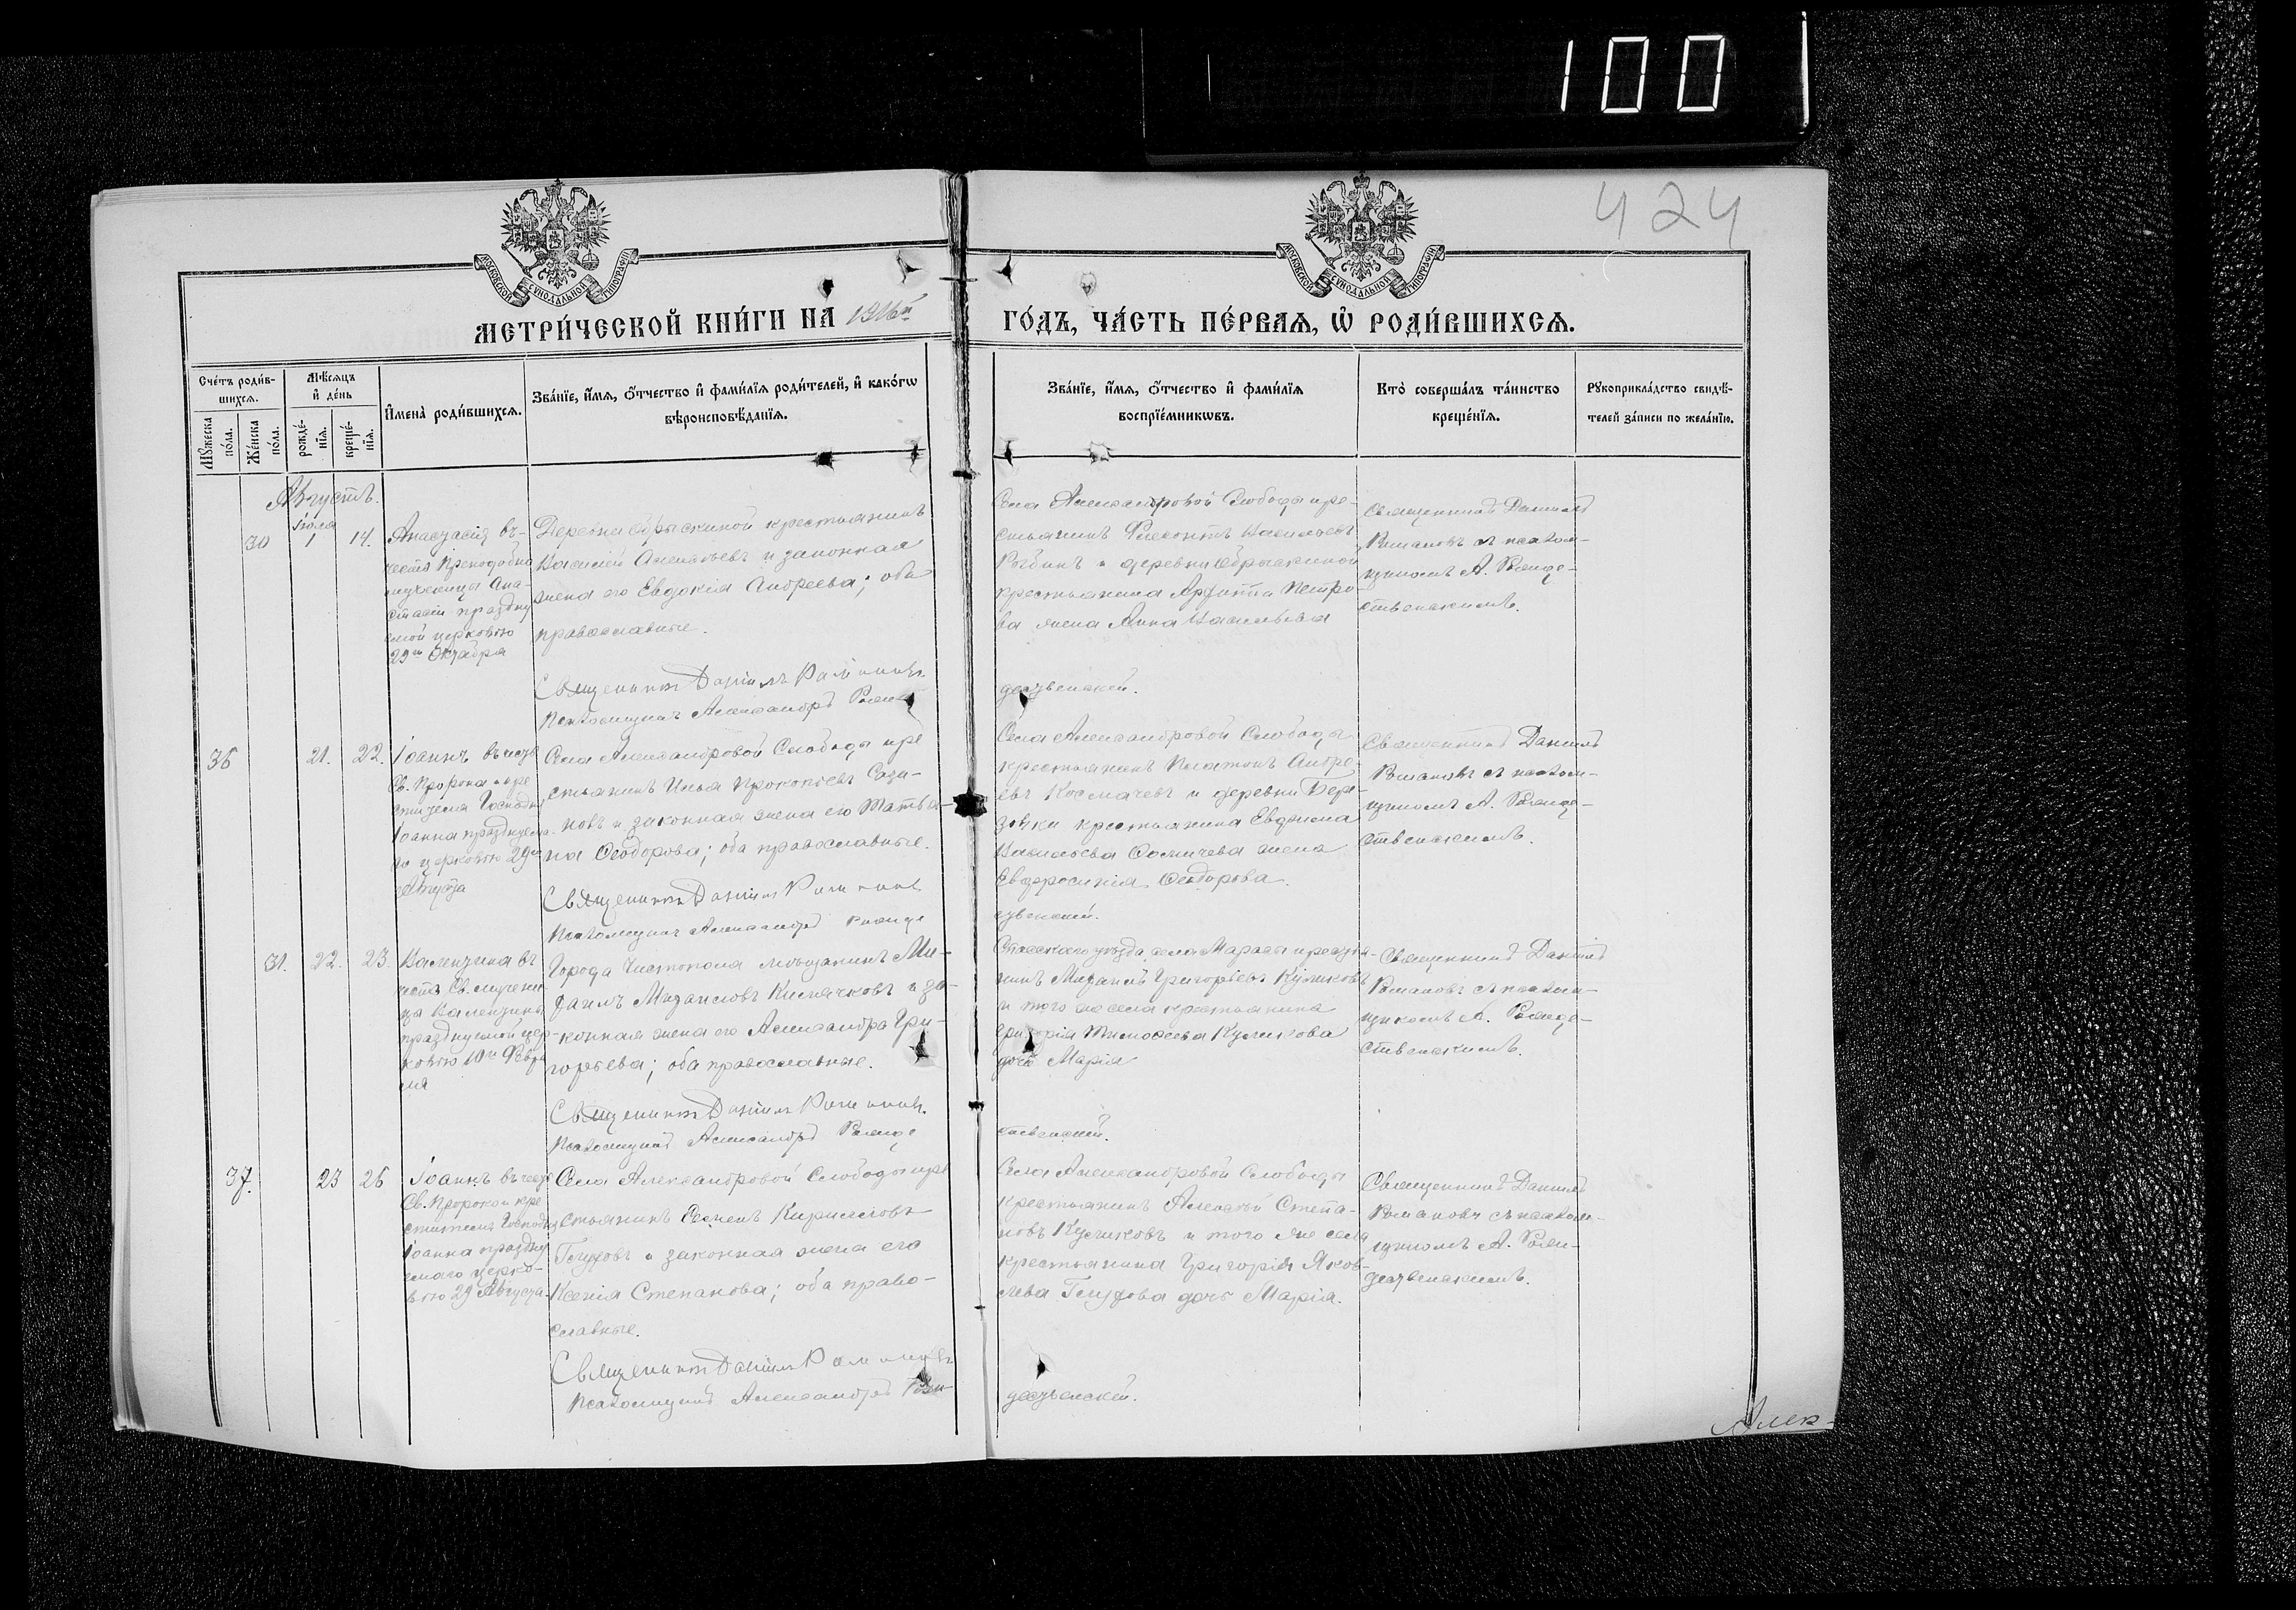 100
424
МОСКОВСКОЙ СѴНОДАЛЬНОЙ ТИПОГРАФІИ
МОСКОВСКОЙ СѴНОДАЛЬНОЙ ТИПОГРАФІИ
МЕТРИ́ЧЕСКОЙ КНИ́ГИ НА 1916й ГО́ДЪ, ЧА́СТЬ ПЕ́РВАѦ, Ѡ҆ РОДИ́ВШИХСѦ.
Сче́тъ роди́в-
шихсѧ.
Мꙋ́жеска по́ла.
Же́нска по́ла.
Мѣ́сѧцъ
и҆ де́нь
рожде́-
нїѧ.
креще́-
нїѧ.
И҆мена̀ роди́вшихсѧ.
Зва́нїе, и҆́мѧ, ѻ҆́тчество и҆ фами́лїѧ роди́телей, и҆ како́гѡ
вѣроисповѣ́данїѧ.
Зва́нїе, и҆́мѧ, ѻ҆́тчество и҆ фами́лїѧ
воспрїе́мникѡвъ.
Кто̀ соверша́лъ та́инство
креще́нїѧ.
Рꙋкоприкла́дство свидѣ́-
телей за́писи по жела́нїю.
Августъ.
30
Іюля
1
14.
Анастасія въ
честь Преподобно
мученицы Ана-
стасіи праздну
емой церковью
29го Октября
крестьянинъ
Василій и законная
жена его Евдокія Андреева; оба
православные.
Священникъ Даніилъ Романовъ
Псаломщикъ Александръ Рожде-
Села Александровой Слободы кре-
стьянинъ Васильевъ
и деревни
крестьянина Петро-
ва жена Анна Васильева
ственскій.
Священникъ Даніилъ
Романовъ съ псалом-
щикомъ А. Рожде-
ственскимъ.
36
21.
22.
Іоаннъ въ честь
Св. Пророка и кре
стителя Господня
Іоанна празднуема-
го церковью 29го
Августа
Села Александровой Слободы кре
стьянинъ Илья Прокопьевъ Саза-
новъ и законная жена его Татья-
на Ѳеодорова; оба православные.
Священникъ Даніилъ Романовъ
Псаломщикъ Александръ Рожде
Села Александровой Слободы
крестьянинъ Платонъ Андре-
евъ Космачевъ и деревни Бере-
зовки крестьянина Евфима
Васильева жена
Евфросинія Ѳеодорова.
ственскій.
Священникъ Даніилъ
Романовъ съ псалом-
щикомъ А. Рожде-
ственскимъ.
31.
22.
23.
Валентина въ
честь Св. мучени-
цы Валентины
празднуемой цер-
ковью 10го Февра
ля
Города Чистополя мѣщанинъ Ми-
хаилъ Михаиловъ и за-
конная жена его Александра Гри-
горьева; оба православные.
Священникъ Даніилъ Романовъ.
Псаломщикъ Александръ Рожде
Спасскаго уѣзда, села Мараса крестья-
нинъ Михаилъ Григорьевъ Куликовъ
и того же села крестьянина
Григорія Тимоѳеева Куликова
дочь Марія
ственскій.
Священникъ Даніилъ
Романовъ съ псалом-
щикомъ А. Рожде-
ственскимъ.
37.
23
26
Іоаннъ въ честь
Св. Пророка и кре
стителя Господня
Іоанна праздну
емаго церко-
вью 29 Августа.
Села Александровой Слободы кре
стьянинъ Семенъ Кирилловъ
Глуховъ и законная жена его
Ксенія Степанова; оба право-
славные.
Священникъ Даніилъ Романовъ
Псаломщикъ Александръ Рож-
Села Александровой Слободы
крестьянинъ Алексѣй Степа-
новъ Куликовъ и того же села
крестьянина Григорія Яков-
лева Глухова дочь Марія.
дественскій.
Священникъ Даніилъ
Романовъ съ псалом-
щикомъ А. Рож-
дественскимъ.
Алек-